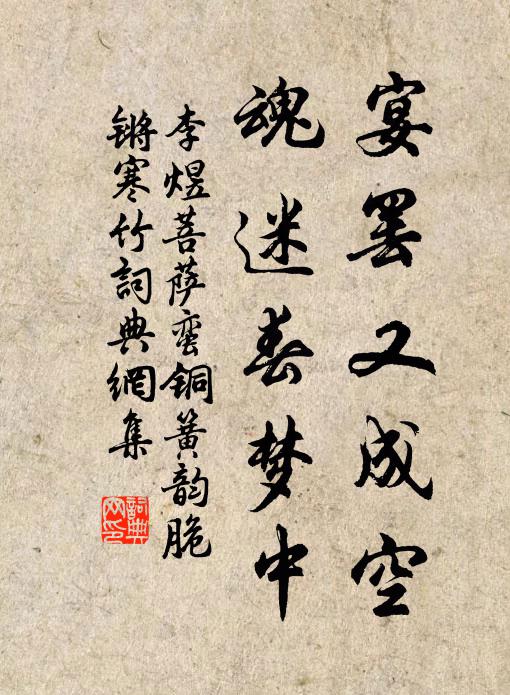 宴罢又成空
魂迷春梦中
李煜菩萨蛮铜簧韵脆
锵寒竹詞典網集
詞典
网印